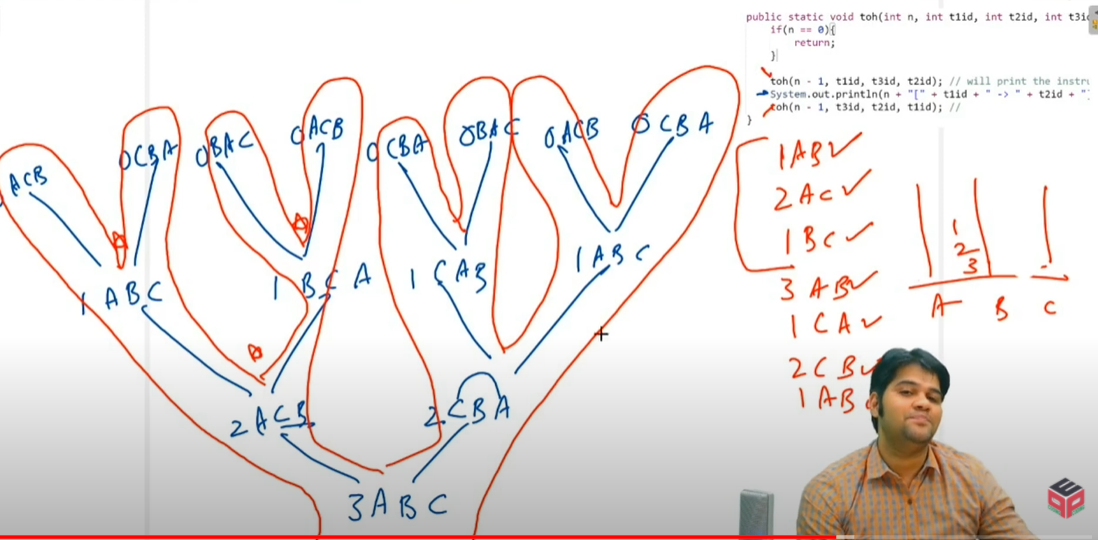 public static void toh(int n, int t1id, int t2id, int t3id
if(n == 0){
return;
}
toh(n - 1, t1id, t3id, t2id); // will print the instru
System.out.println(n + "[" + t1id + " -> " + t2id + "]
toh(n - 1, t3id, t2id, t1id); //
}
ACB
0CBA
0BAC
0ACB
0CBA
0BAC
0ACB
0CBA
1 ABC
1 BCA
1 CAB
1ABC
2 ACB
2CBA
3ABC
1AB
2AC
1BC
3 AB
1 CA
2CB
1AB
1
2
3
A
B
C